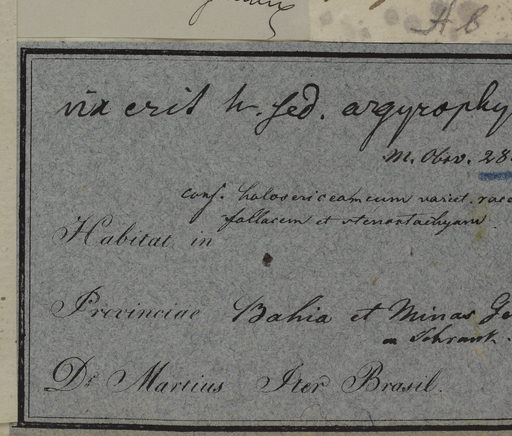 A b
vix erit h. sed. argyrophy
M. Obsv. 28
conf. holosericeam cum variet. race
fallacem et stenostachyam.
Habitat in
Provinciae Bahia et Minas Ge
Schrank.
Dr Martius Iter Brasil.